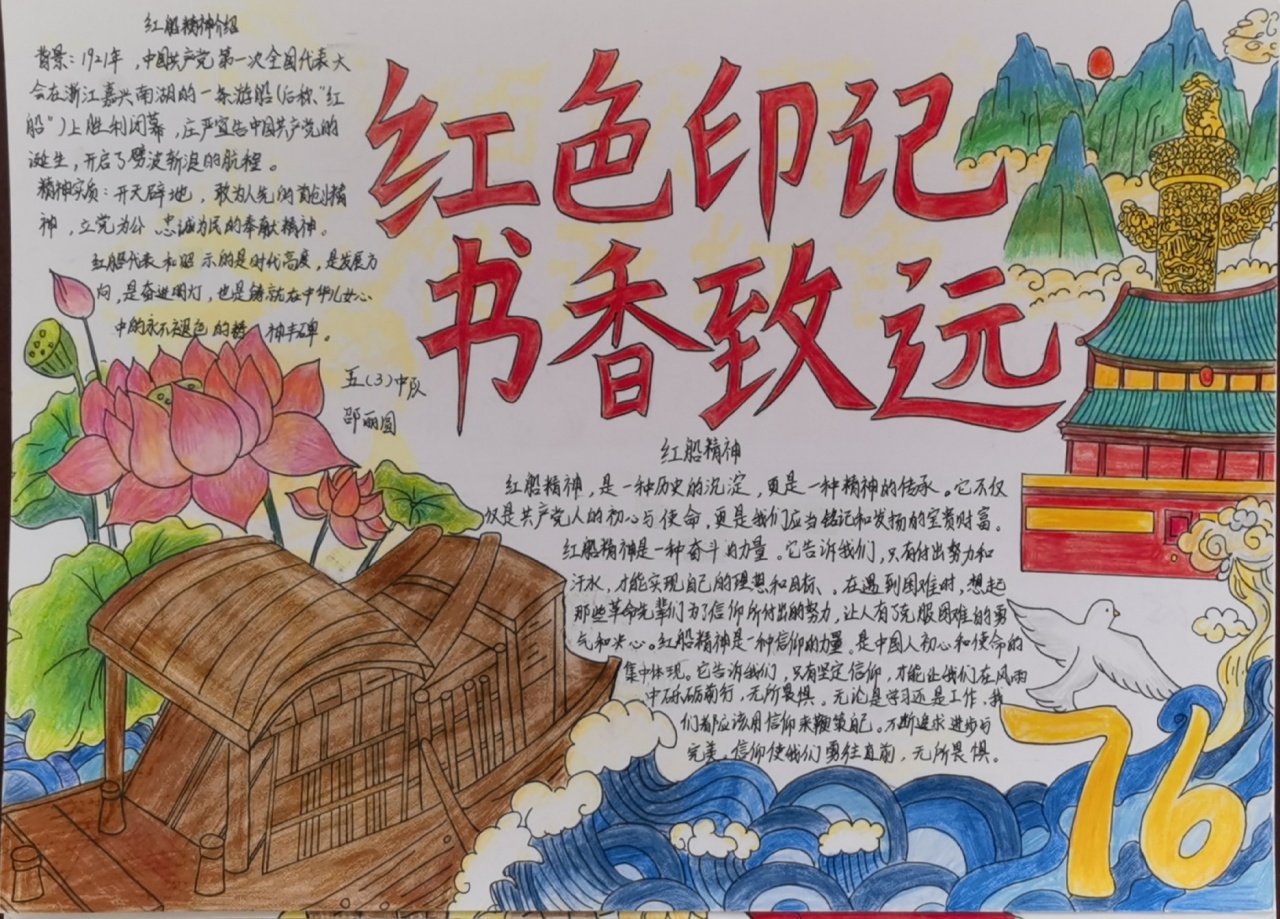 红船精神介绍
背景：1921年，中国共产党第一次全国代表大
会在浙江嘉兴南湖的一条游船(后称“红
船”)上胜利闭幕，庄严宣告中国共产党的
诞生，开启了劈波斩浪的航程。
精神实质：开天辟地，敢为人先的首创精
神，立党为公、忠诚为民的奉献精神。
红船代表和昭示的是时代高度，是发展方
向，是奋进明灯，也是铸就在中华儿女心
中的永不褪色的精神丰碑。
五(3)中队
邵丽圆
红色印记
书香致远
红船精神
红船精神，是一种历史的沉淀，更是一种精神的传承。它不仅
仅是共产党人的初心与使命，更是我们应当铭记和发扬的宝贵财富。
红船精神是一种奋斗的力量。它告诉我们，只有付出努力和
汗水，才能实现自己的理想和目标、。在遇到困难时，想起
那些革命先辈们为了信仰所付出的努力，让人有了克服困难的勇
气和决心。红船精神是一种信仰的力量，是中国人初心和使命的
集中体现。它告诉我们，只有坚定信仰，才能让我们在风雨
中砥砺前行，无所畏惧。无论是学习还是工作，我
们都应该用信仰来鞭策自己。不断追求进步与
完美，信仰使我们勇往直前，无所畏惧。
76